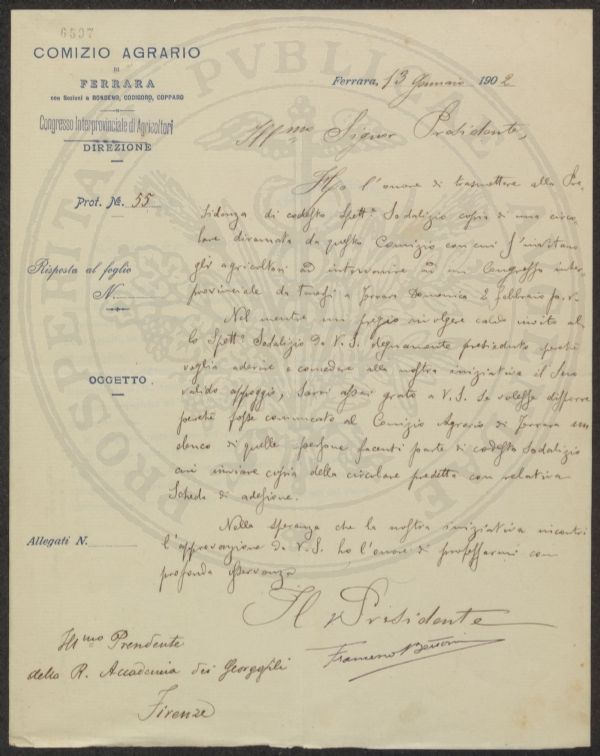 6507
COMIZIO AGRARIO
DI
FERRARA
con Sezioni a BONDENO, CODIGORO, COPPARO
Congresso Interprovinciale di Agricoltori
DIREZIONE
Ferrara, 13 Gennaio 1902
Ill.mo Signor Presidente,
Prot. N. 55
Ho l'onore di trasmettere alla Pre-
sidenza di codesto Spett. Sodalizio copia di una circo-
lare diramata da questo Comizio con cui s'invitano
gli agricoltori ad intervenire ad un Congresso inter-
provinciale da tenersi a Ferrara Domenica 2 febbraio
Risposta al foglio
N.
Nel mentre mi pregio rivolgere caldo invito al-
lo Spett. Sodalizio da V. S. degnamente presieduto perchè
voglia aderire e concedere alla nostra iniziativa il suo
valido appoggio, sarei assai grato a V. S. se volesse disporre
perchè fosse comunicato al Comizio Agrario di Ferrara un
elenco di quelle persone facenti parte di codesto Sodalizio
cui inviare copia della circolare predetta con relativa
scheda di adesione.
OGGETTO
Nella speranza che la nostra iniziativa incontri
l'approvazione di V. S. ho l'onore di professarmi con
profonda osservanza
Allegati N.
Il Presidente
Francesco
Ill.mo Presidente
della R. Accademia dei Georgofili
Firenze
PVBLICAE
PROSPERITATI